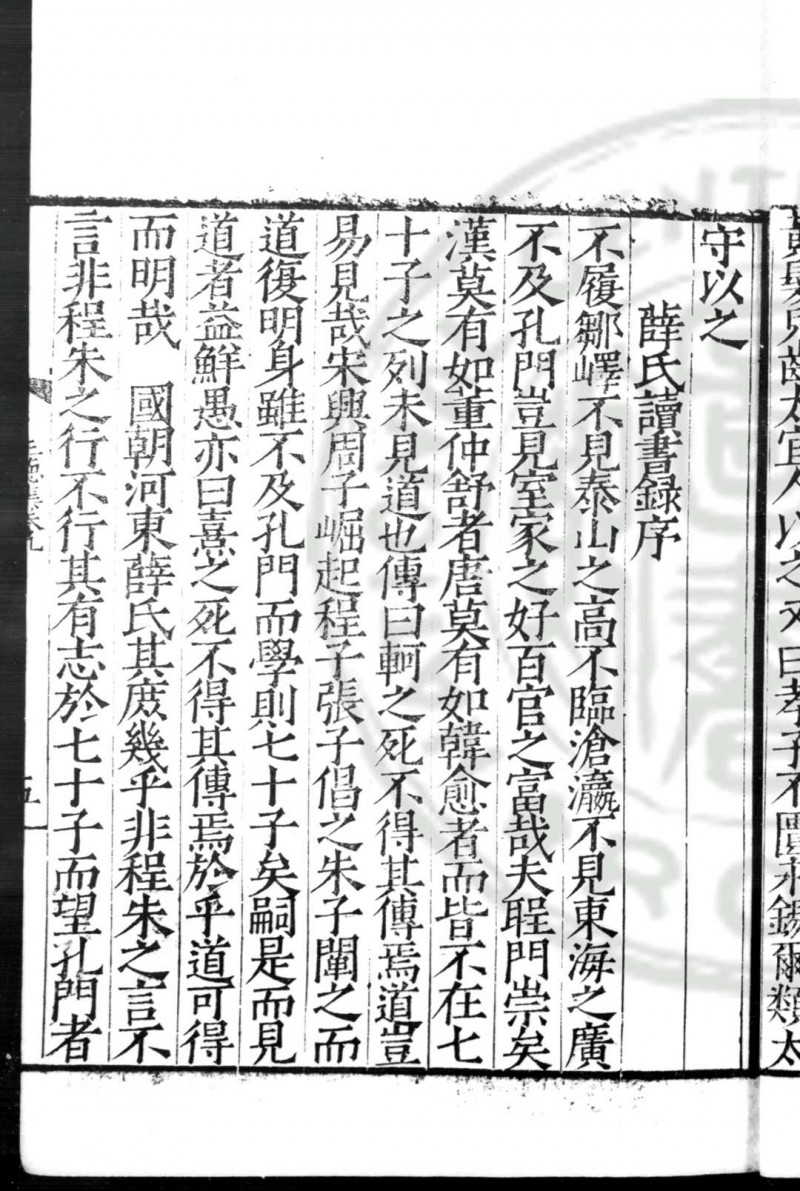 以之又曰孝子不匱永錫爾類太
守以之
薛氏讀書錄序
不履鄒嶧不見泰山之高不臨滄瀛不見東海之廣
不及孔門豈見室家之好百官之富哉夫聖門崇矣
漢莫有如董仲舒者唐莫有如韓愈者而皆不在七
十子之列未見道也傳曰軻之死不得其傳焉道豈
易見哉宋興周子崛起程子張子倡之朱子闡之而
道復明身雖不及孔門而學則七十子矣嗣是而見
道者益鮮愚亦曰熹之死不得其傳焉於乎道可得
而明哉　國朝河東薛氏其庶幾乎非程朱之言不
言非程朱之行不行其有志於七十子而望孔門者
五